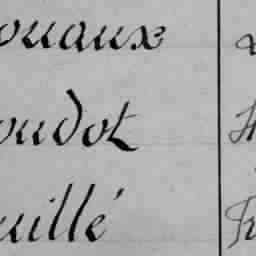 ouaux
oudot
uillé